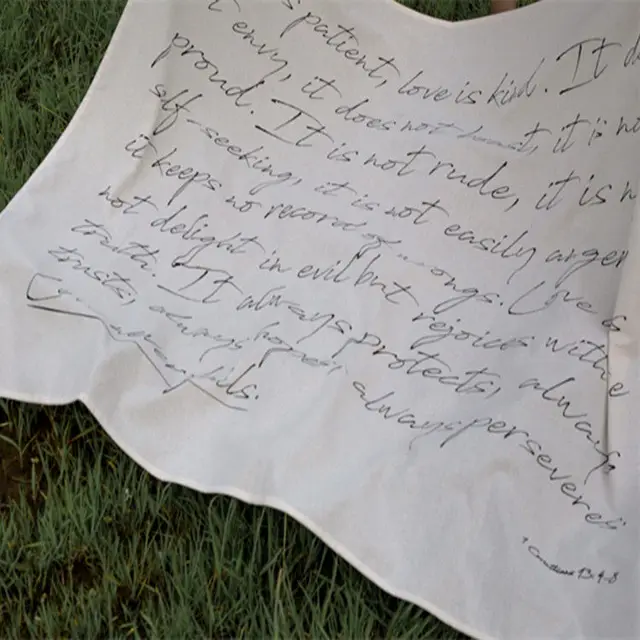 patient, love is kind. It d
envy, it does not boast, it is n
proud. It is not rude, it is n
self-seeking, it is not easily anger
it keeps no record of wrongs. Love
not delight in evil but rejoices with the
truth. It always protects, always
trusts, always hopes, always perseveres.